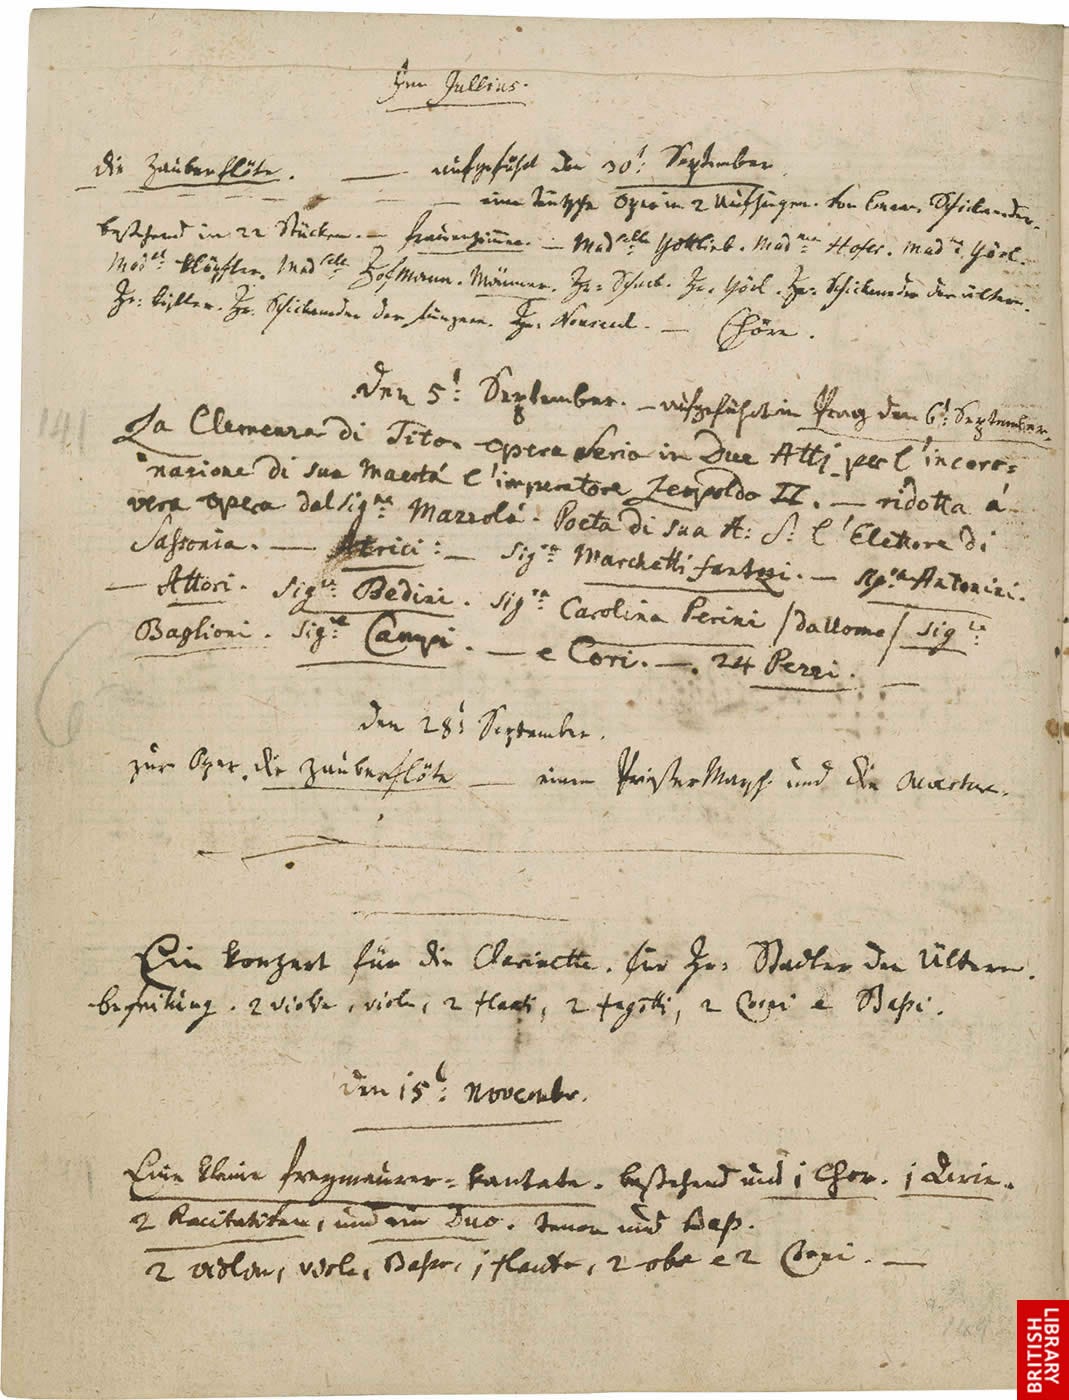 Im Jullius.
die Zauberflöte. — aufgeführt den 30t: September.
— eine teutsche Oper in 2 Aufzügen. von Eman. Schickaneder.
bestehend in 22 Stücken. — Frauenzimmer. — Mad:selle Gottlieb. Mad:me Hofer. Mad:me Görl.
Mad:elle Klöpfler. Mad:selle Hofmann. Männer. Hr: Schack. Hr: Görl. Hr: Schickaneder der ältere.
Hr: Kistler. Hr: Schickaneder der Jüngere. Hr: Nouseul. — Chöre.
den 5t: September. — aufgeführt in Prag den 6t: September.
La Clemenza di Tito. opera Seria in Due Atti. per l'incoro=
nazione di sua Maestà l'imperatore Leopoldo II. — ridotta á
vera opera dal Sigre Mazzolá. Poeta di sua A: S: l'Elettore di
Sassonia. — Attrici: — Sigra Marchetti fantozi. — Sigra Antonini.
— Attori. Sigre Bedini. Sigra Carolina Perini /da Uomo/ Sigre
Baglioni. Sigre Campi. — e Cori. — 24 Pezzi. —
den 28t September.
zur Oper. die Zauberflöte — einen Priester Marsch und die Overture.
Ein Konzert für die Clarinette. für Hr: Stadler den Ältern.
begleitung. 2 violini, viole, 2 flauti, 2 fagotti, 2 Corni e Baßi.
den 15t: Novembr.
Eine kleine freymaurer=kantate. bestehend aus 1 Chor. 1 Arie.
2 Recitativen, und ein Duo. tenor und Baß.
2 violini, viole, Baßo, 1 flauto, 2 oboe e 2 Corni. —
141
BRITISH
LIBRARY